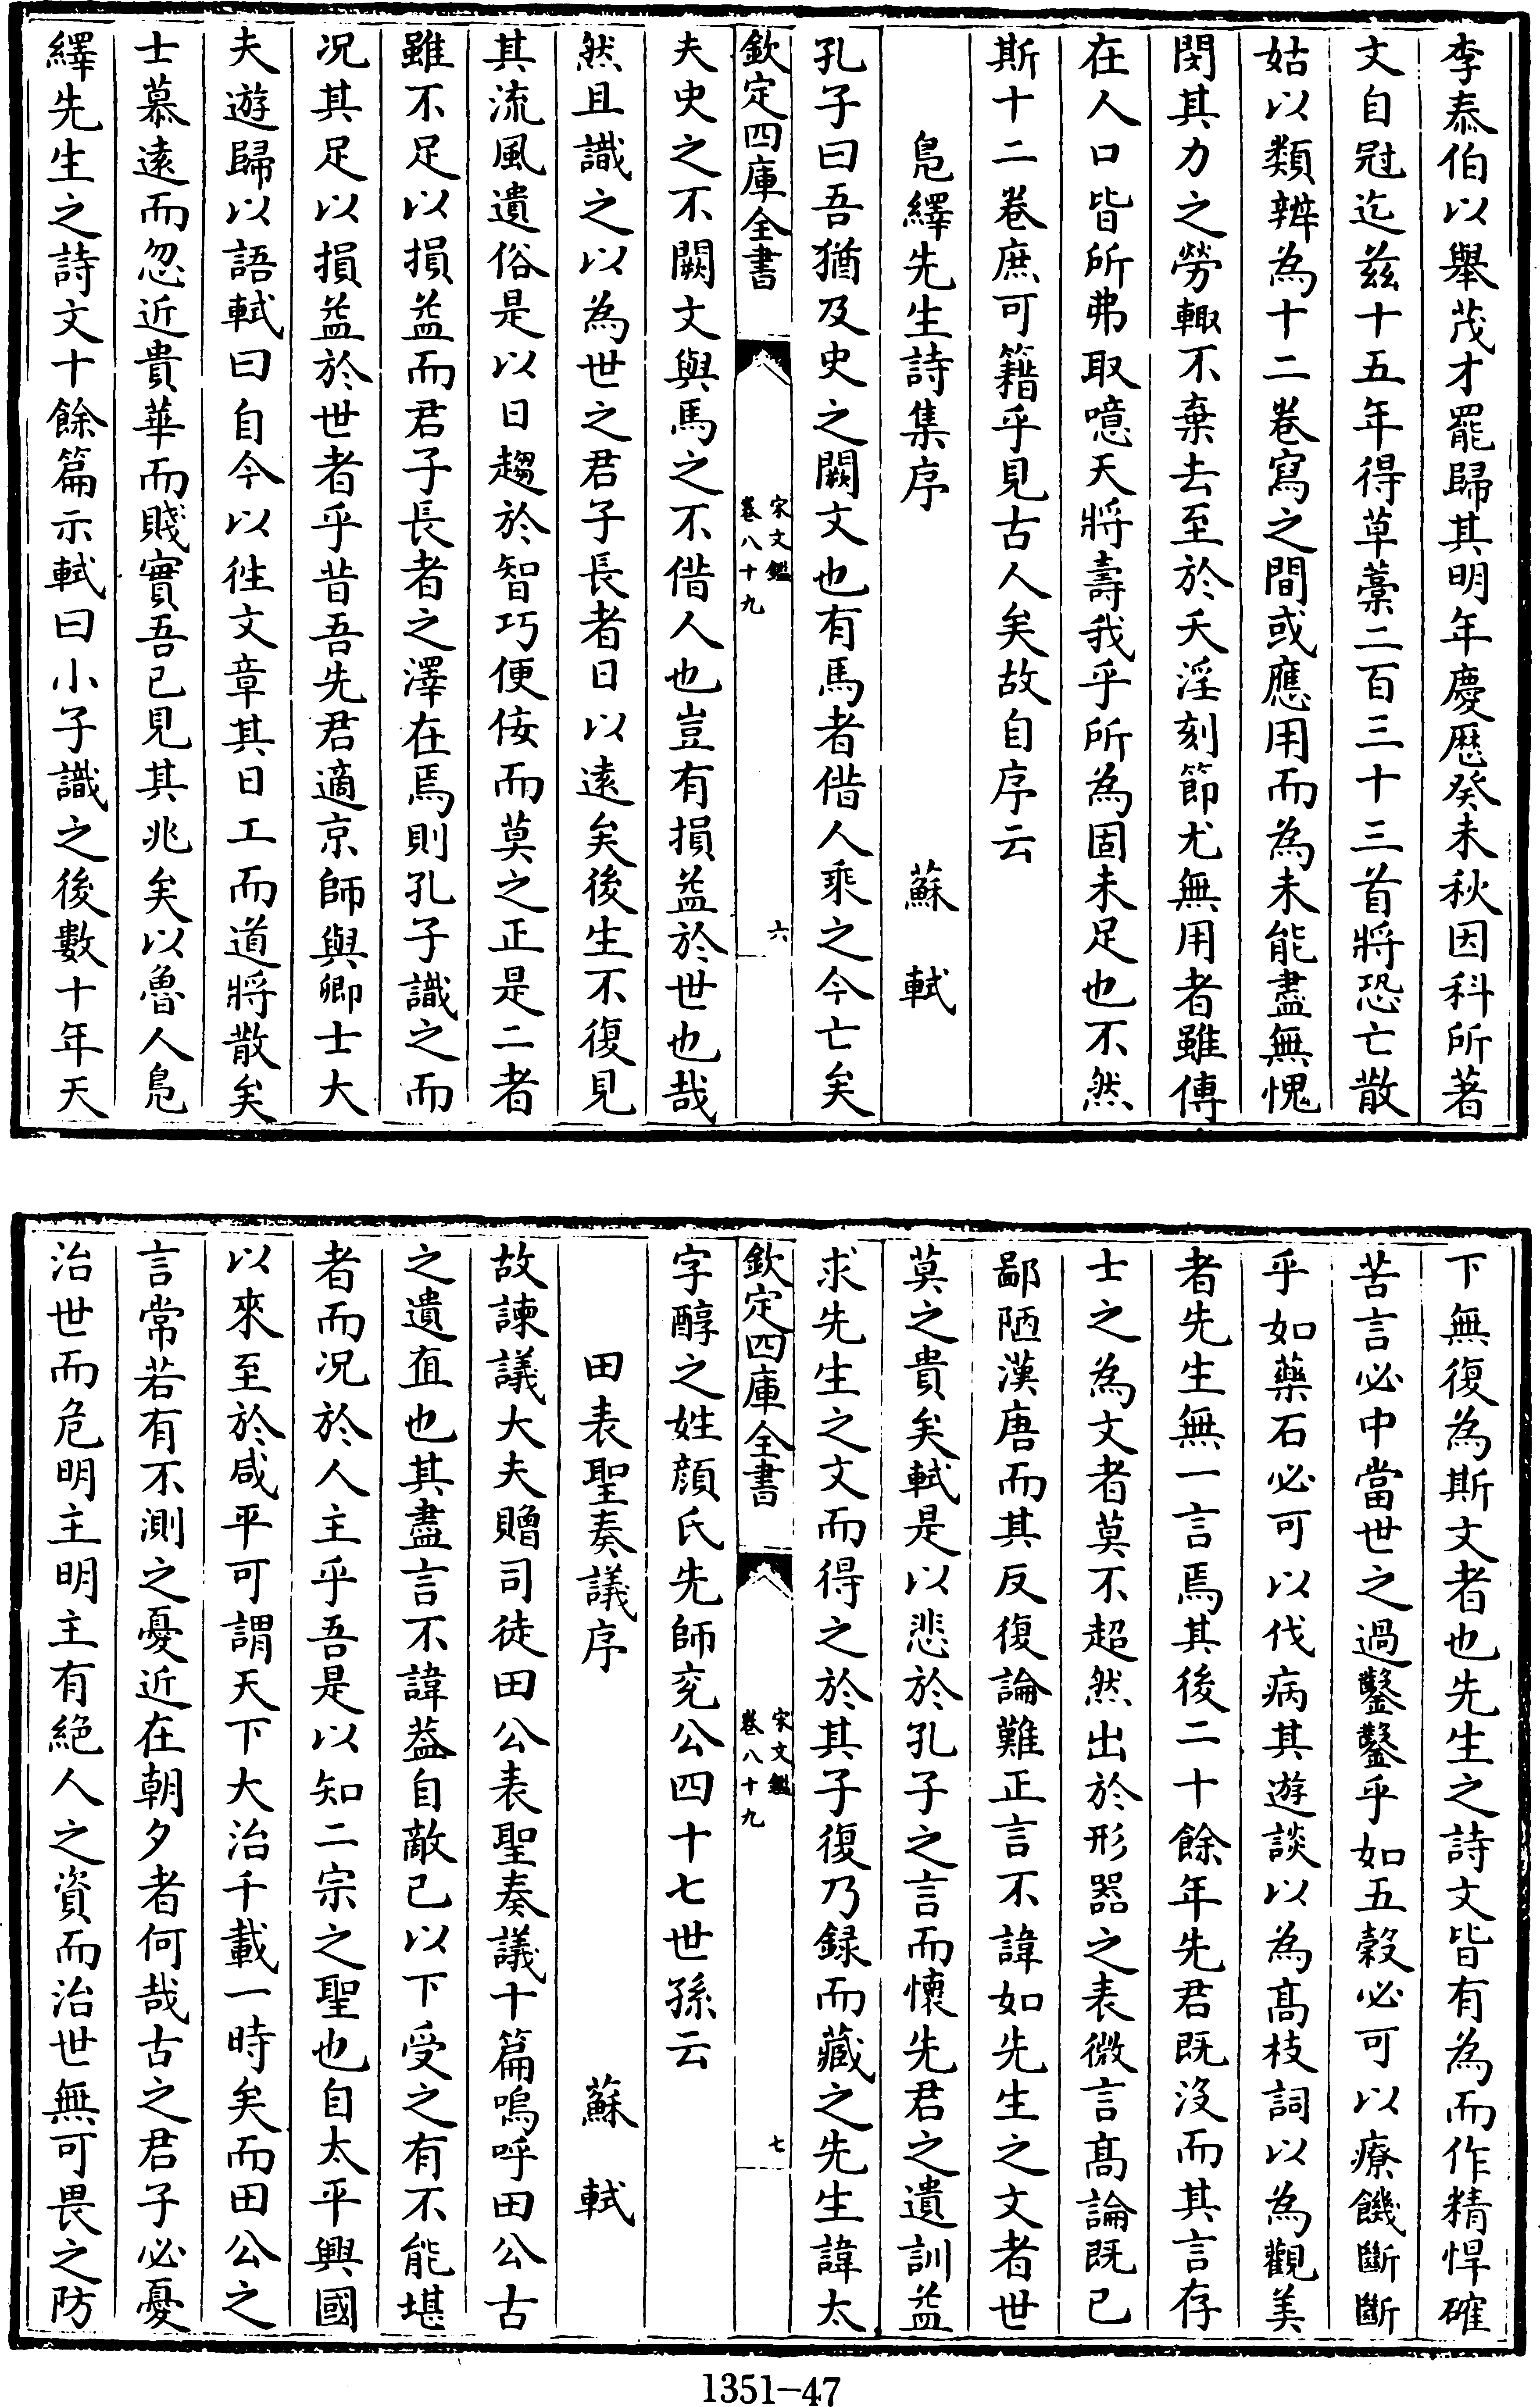 李泰伯以舉茂才罷歸其明年慶厯癸未秋因科所著
文自冠迄兹十五年得草藁二百三十三首將恐亡散
姑以類辨為十二卷寫之間或應用而為未能盡無愧
閔其力之勞輙不棄去至於夭淫刻節尤無用者雖傳
在人口皆所弗取噫天將壽我乎所為固未足也不然
斯十二卷庶可籍乎見古人矣故自序云
鳬繹先生詩集序　蘇軾
孔子曰吾猶及史之闕文也有馬者借人乘之今亡矣
欽定四庫全書　宋文鑑
卷八十九　六
夫史之不闕文與馬之不借人也豈有損益於世也哉
然且識之以為世之君子長者日以遠矣後生不復見
其流風遺俗是以日趨於智巧便佞而莫之正是二者
雖不足以損益而君子長者之澤在焉則孔子識之而
况其足以損益於世者乎昔吾先君適京師與卿士大
夫遊歸以語軾曰自今以往文章其日工而道將散矣
士慕遠而忽近貴華而賤實吾已見其兆矣以魯人鳬
繹先生之詩文十餘篇示軾曰小子識之後數十年天
下無復為斯文者也先生之詩文皆有為而作精悍確
苦言必中當世之過鑿鑿乎如五榖必可以療饑斷斷
乎如藥石必可以伐病其遊談以為髙枝詞以為觀美
者先生無一言焉其後二十餘年先君既沒而其言存
士之為文者莫不超然出於形器之表微言髙論既已
鄙陋漢唐而其反復論難正言不諱如先生之文者世
莫之貴矣軾是以悲於孔子之言而懷先君之遺訓益
求先生之文而得之於其子復乃録而藏之先生諱太
欽定四庫全書　宋文鑑
卷八十九　七
字醇之姓顔氏先師兖公四十七世孫云
田表聖奏議序　蘇軾
故諫議大夫贈司徒田公表聖奏議十篇嗚呼田公古
之遺直也其盡言不諱葢自敵已以下受之有不能堪
者而况於人主乎吾是以知二宗之聖也自太平興國
以來至於咸平可謂天下大治千載一時矣而田公之
言常若有不測之憂近在朝夕者何哉古之君子必憂
治世而危明主明主有絶人之資而治世無可畏之防
1351-47